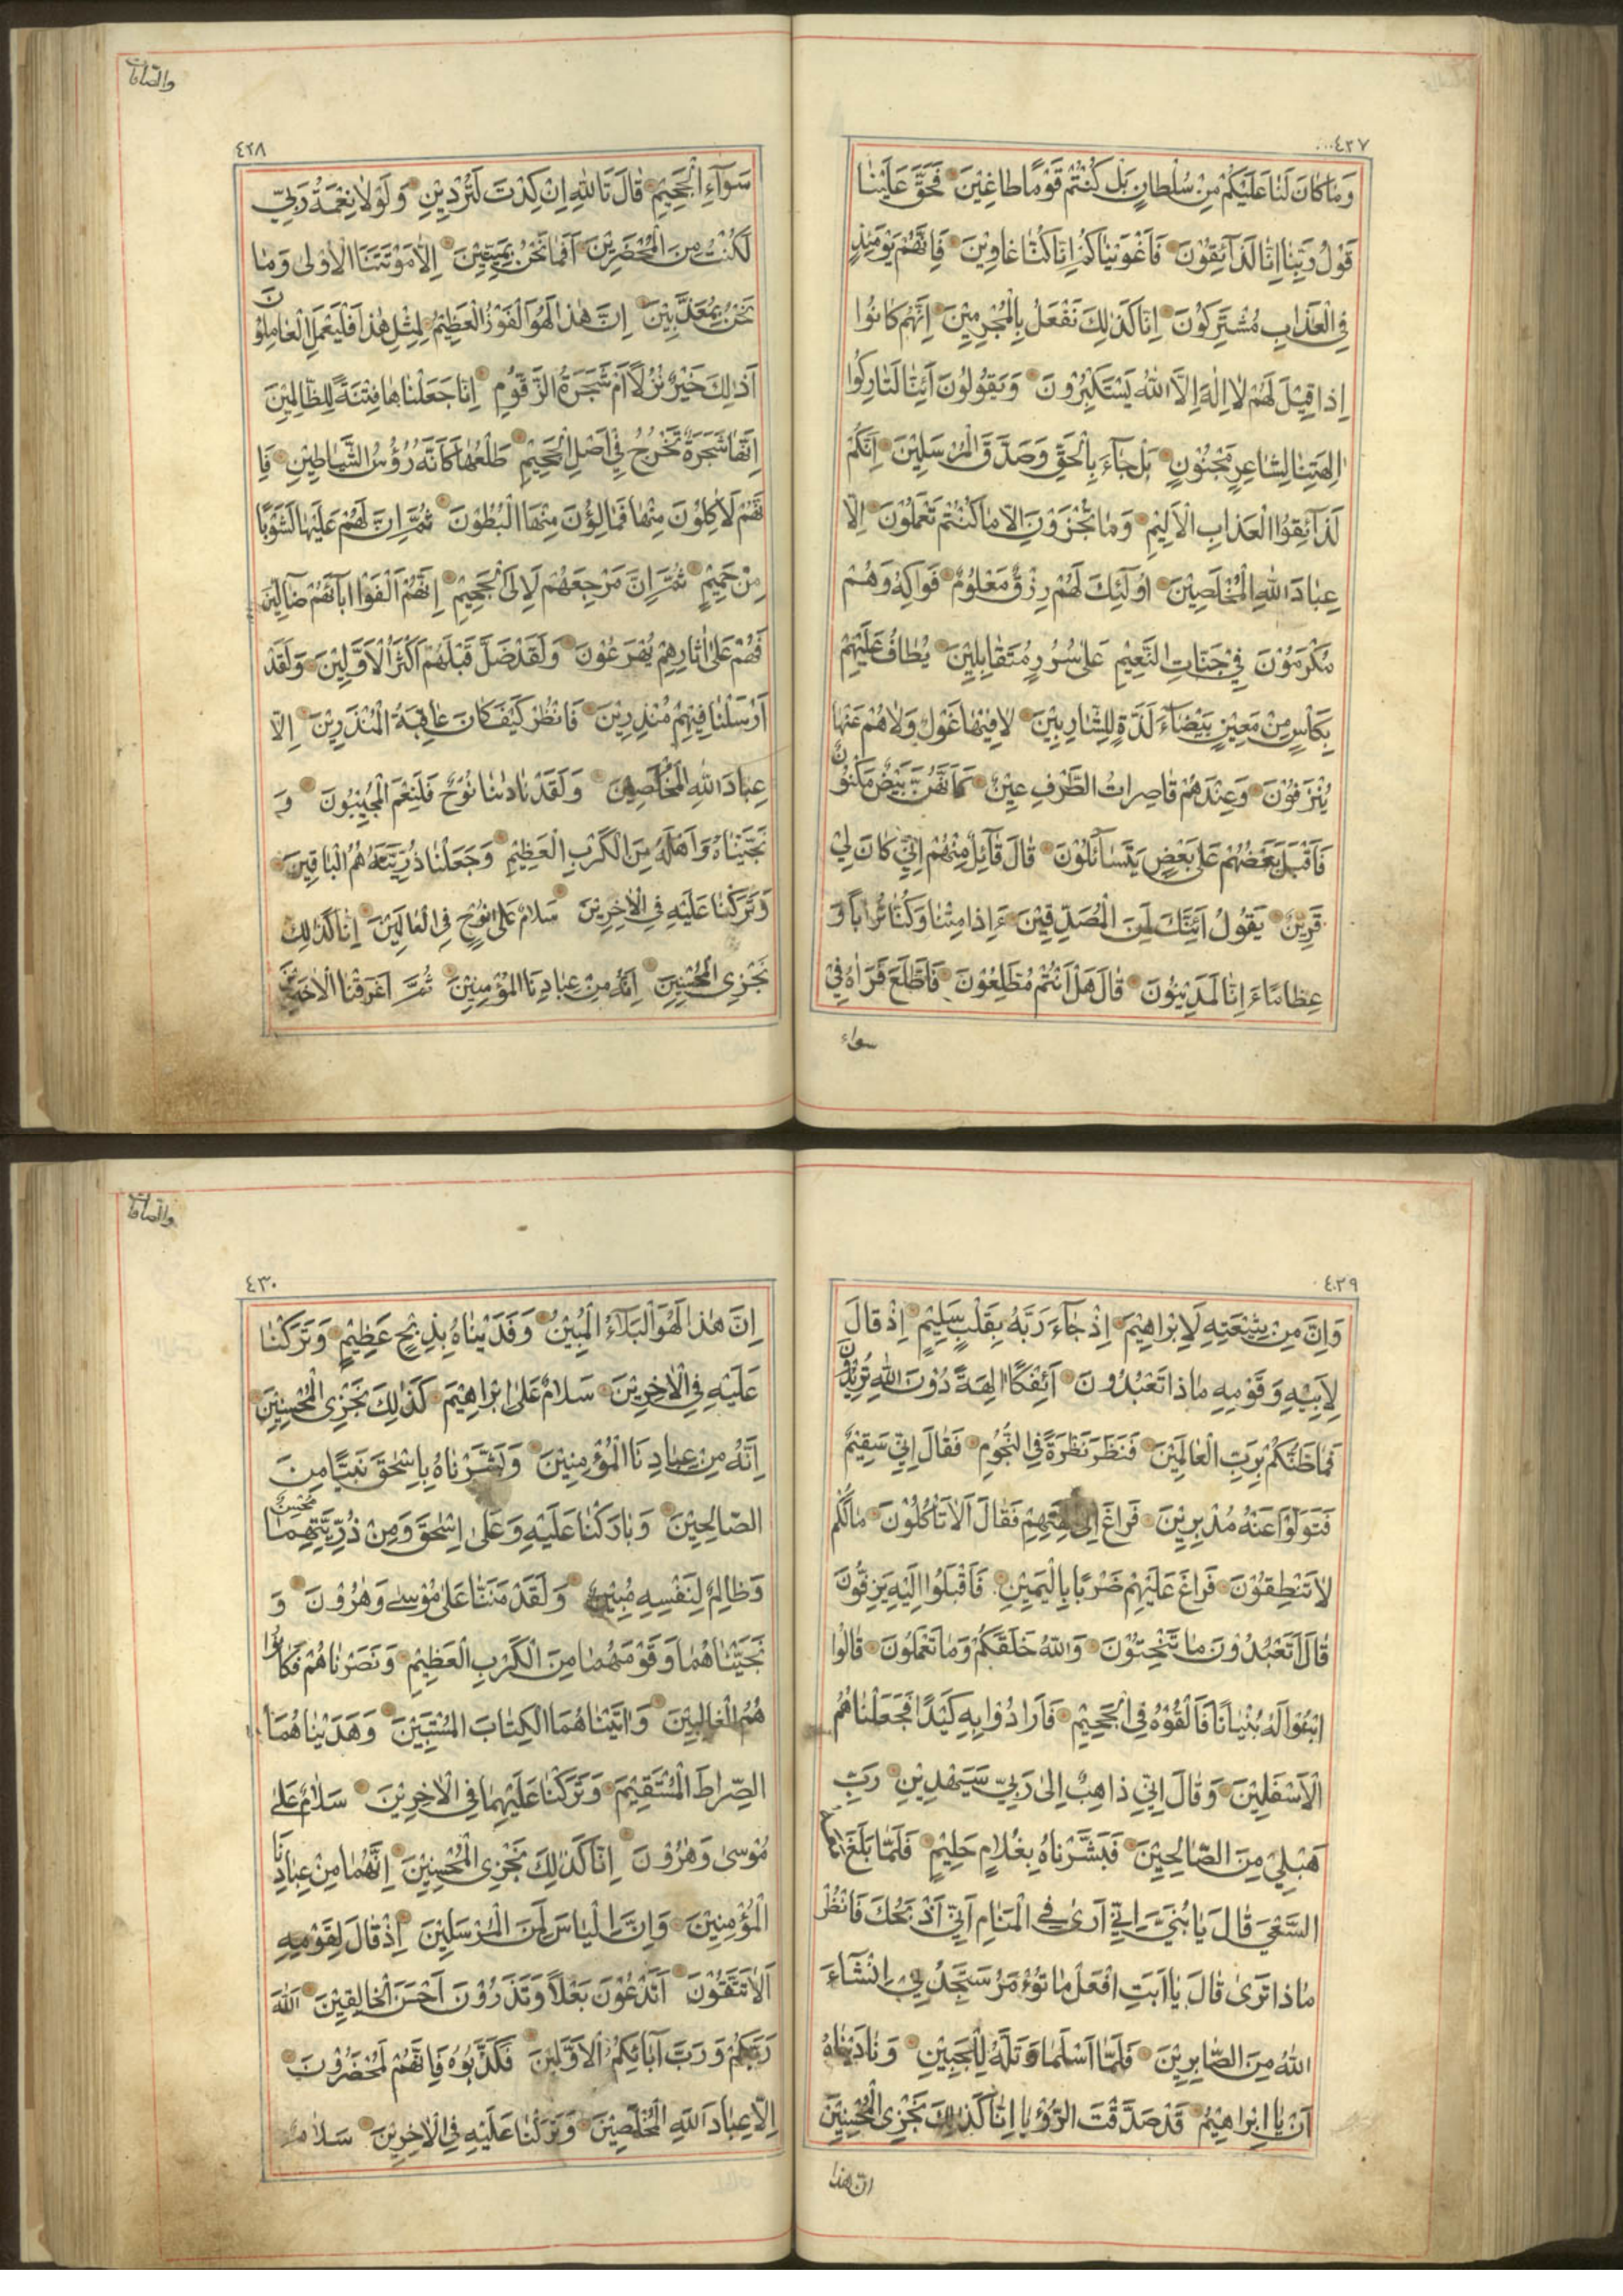 ٤٢٧
وَمَا كَانَ لَنَا عَلَيْكُمْ مِنْ سُلْطَانٍ بَلْ كُنْتُمْ قَوْمًا طَاغِينَ فَحَقَّ عَلَيْنَا
قَوْلُ رَبِّنَا اِنَّا لَذَآئِقُونَ فَاَغْوَيْنَاكُمْ اِنَّا كُنَّا غَاوِينَ فَاِنَّهُمْ يَوْمَئِذٍ
فِي الْعَذَابِ مُشْتَرِكُونَ اِنَّا كَذٰلِكَ نَفْعَلُ بِالْمُجْرِمِينَ اِنَّهُمْ كَانُوا
اِذَا قِيلَ لَهُمْ لَا اِلٰهَ اِلَّا اللّٰهُ يَسْتَكْبِرُونَ وَيَقُولُونَ اَئِنَّا لَتَارِكُوا
اٰلِهَتِنَا لِشَاعِرٍ مَجْنُونٍ بَلْ جَآءَ بِالْحَقِّ وَصَدَّقَ الْمُرْسَلِينَ اِنَّكُمْ
لَذَآئِقُوا الْعَذَابِ الْاَلِيمِ وَمَا تُجْزَوْنَ اِلَّا مَا كُنْتُمْ تَعْمَلُونَ اِلَّا
عِبَادَ اللّٰهِ الْمُخْلَصِينَ اُولٰٓئِكَ لَهُمْ رِزْقٌ مَعْلُومٌ فَوَاكِهُ وَهُمْ
مُكْرَمُونَ فِي جَنَّاتِ النَّعِيمِ عَلٰى سُرُرٍ مُتَقَابِلِينَ يُطَافُ عَلَيْهِمْ
بِكَاْسٍ مِنْ مَعِينٍ بَيْضَآءَ لَذَّةٍ لِلشَّارِبِينَ لَا فِيهَا غَوْلٌ وَلَا هُمْ عَنْهَا
يُنْزَفُونَ وَعِنْدَهُمْ قَاصِرَاتُ الطَّرْفِ عِينٌ كَاَنَّهُنَّ بَيْضٌ مَكْنُونٌ
فَاَقْبَلَ بَعْضُهُمْ عَلٰى بَعْضٍ يَتَسَآئَلُونَ قَالَ قَآئِلٌ مِنْهُمْ اِنِّي كَانَ لِي
قَرِينٌ يَقُولُ اَئِنَّكَ لَمِنَ الْمُصَدِّقِينَ ءَاِذَا مِتْنَا وَكُنَّا تُرَابًا وَ
عِظَامًا ءَاِنَّا لَمَدِينُونَ قَالَ هَلْ اَنْتُمْ مُطَّلِعُونَ فَاطَّلَعَ فَرَاٰهُ فِي
سواء
والصافات
٤٢٨
سَوَآءِ الْجَحِيمِ قَالَ تَاللّٰهِ اِنْ كِدْتَ لَتُرْدِينِ وَلَوْلَا نِعْمَةُ رَبِّي
لَكُنْتُ مِنَ الْمُحْضَرِينَ اَفَمَا نَحْنُ بِمَيِّتِينَ اِلَّا مَوْتَتَنَا الْاُولٰى وَمَا
نَحْنُ بِمُعَذَّبِينَ اِنَّ هٰذَا لَهُوَ الْفَوْزُ الْعَظِيمُ لِمِثْلِ هٰذَا فَلْيَعْمَلِ الْعَامِلُونَ
اَذٰلِكَ خَيْرٌ نُزُلًا اَمْ شَجَرَةُ الزَّقُّومِ اِنَّا جَعَلْنَاهَا فِتْنَةً لِلظَّالِمِينَ
اِنَّهَا شَجَرَةٌ تَخْرُجُ فِي اَصْلِ الْجَحِيمِ طَلْعُهَا كَاَنَّهُ رُؤُسُ الشَّيَاطِينِ فَاِ
نَّهُمْ لَاٰكِلُونَ مِنْهَا فَمَالِؤُنَ مِنْهَا الْبُطُونَ ثُمَّ اِنَّ لَهُمْ عَلَيْهَا لَشَوْبًا
مِنْ حَمِيمٍ ثُمَّ اِنَّ مَرْجِعَهُمْ لَاِلَى الْجَحِيمِ اِنَّهُمْ اَلْفَوْا اٰبَآئَهُمْ ضَآلِّينَ
فَهُمْ عَلٰى اٰثَارِهِمْ يُهْرَعُونَ وَلَقَدْ ضَلَّ قَبْلَهُمْ اَكْثَرُ الْاَوَّلِينَ وَلَقَدْ
اَرْسَلْنَا فِيهِمْ مُنْذِرِينَ فَانْظُرْ كَيْفَ كَانَ عَاقِبَةُ الْمُنْذَرِينَ اِلَّا
عِبَادَ اللّٰهِ الْمُخْلَصِينَ وَلَقَدْ نَادٰينَا نُوحٌ فَلَنِعْمَ الْمُجِيبُونَ وَ
نَجَّيْنَاهُ وَاَهْلَهُ مِنَ الْكَرْبِ الْعَظِيمِ وَجَعَلْنَا ذُرِّيَّتَهُ هُمُ الْبَاقِينَ
وَتَرَكْنَا عَلَيْهِ فِي الْاٰخِرِينَ سَلَامٌ عَلٰى نُوحٍ فِي الْعَالَمِينَ اِنَّا كَذٰلِكَ
نَجْزِي الْمُحْسِنِينَ اِنَّهُ مِنْ عِبَادِنَا الْمُؤْمِنِينَ ثُمَّ اَغْرَقْنَا الْاٰخَرِينَ
٤٢٩
وَاِنَّ مِنْ شِيعَتِهِ لَاِبْرَاهِيمَ اِذْ جَآءَ رَبَّهُ بِقَلْبٍ سَلِيمٍ اِذْ قَالَ
لِاَبِيهِ وَقَوْمِهِ مَاذَا تَعْبُدُونَ اَئِفْكًا اٰلِهَةً دُونَ اللّٰهِ تُرِيدُونَ
فَمَا ظَنُّكُمْ بِرَبِّ الْعَالَمِينَ فَنَظَرَ نَظْرَةً فِي النُّجُومِ فَقَالَ اِنِّي سَقِيمٌ
فَتَوَلَّوْا عَنْهُ مُدْبِرِينَ فَرَاغَ اِلٰى اٰلِهَتِهِمْ فَقَالَ اَلَا تَاْكُلُونَ مَا لَكُمْ
لَا تَنْطِقُونَ فَرَاغَ عَلَيْهِمْ ضَرْبًا بِالْيَمِينِ فَاَقْبَلُوا اِلَيْهِ يَزِفُّونَ
قَالَ اَتَعْبُدُونَ مَا تَنْحِتُونَ وَاللّٰهُ خَلَقَكُمْ وَمَا تَعْمَلُونَ قَالُوا
ابْنُوا لَهُ بُنْيَانًا فَاَلْقُوهُ فِي الْجَحِيمِ فَاَرَادُوا بِهِ كَيْدًا فَجَعَلْنَاهُمُ
الْاَسْفَلِينَ وَقَالَ اِنِّي ذَاهِبٌ اِلٰى رَبِّي سَيَهْدِينِ رَبِّ
هَبْ لِي مِنَ الصَّالِحِينَ فَبَشَّرْنَاهُ بِغُلَامٍ حَلِيمٍ فَلَمَّا بَلَغَ مَعَهُ
السَّعْيَ قَالَ يَا بُنَيَّ اِنِّي اَرٰى فِي الْمَنَامِ اَنِّي اَذْبَحُكَ فَانْظُرْ
مَاذَا تَرٰى قَالَ يَا اَبَتِ افْعَلْ مَا تُؤْمَرُ سَتَجِدُنِي اِنْ شَآءَ
اللّٰهُ مِنَ الصَّابِرِينَ فَلَمَّا اَسْلَمَا وَتَلَّهُ لِلْجَبِينِ وَنَادَيْنَاهُ
اَنْ يَا اِبْرَاهِيمُ قَدْ صَدَّقْتَ الرُّؤْيَا اِنَّا كَذٰلِكَ نَجْزِي الْمُحْسِنِينَ
ان هذا
والصافات
٤٣٠
اِنَّ هٰذَا لَهُوَ الْبَلَآءُ الْمُبِينُ وَفَدَيْنَاهُ بِذِبْحٍ عَظِيمٍ وَتَرَكْنَا
عَلَيْهِ فِي الْاٰخِرِينَ سَلَامٌ عَلٰى اِبْرَاهِيمَ كَذٰلِكَ نَجْزِي الْمُحْسِنِينَ
اِنَّهُ مِنْ عِبَادِنَا الْمُؤْمِنِينَ وَبَشَّرْنَاهُ بِاِسْحٰقَ نَبِيًّا مِنَ
الصَّالِحِينَ وَبَارَكْنَا عَلَيْهِ وَعَلٰى اِسْحٰقَ وَمِنْ ذُرِّيَّتِهِمَا مُحْسِنٌ
وَظَالِمٌ لِنَفْسِهِ مُبِينٌ وَلَقَدْ مَنَنَّا عَلٰى مُوسٰى وَهٰرُونَ وَ
نَجَّيْنَاهُمَا وَقَوْمَهُمَا مِنَ الْكَرْبِ الْعَظِيمِ وَنَصَرْنَاهُمْ فَكَانُوا
هُمُ الْغَالِبِينَ وَاٰتَيْنَاهُمَا الْكِتَابَ الْمُسْتَبِينَ وَهَدَيْنَاهُمَا
الصِّرَاطَ الْمُسْتَقِيمَ وَتَرَكْنَا عَلَيْهِمَا فِي الْاٰخِرِينَ سَلَامٌ عَلٰى
مُوسٰى وَهٰرُونَ اِنَّا كَذٰلِكَ نَجْزِي الْمُحْسِنِينَ اِنَّهُمَا مِنْ عِبَادِنَا
الْمُؤْمِنِينَ وَاِنَّ اِلْيَاسَ لَمِنَ الْمُرْسَلِينَ اِذْ قَالَ لِقَوْمِهِ
اَلَا تَتَّقُونَ اَتَدْعُونَ بَعْلًا وَتَذَرُونَ اَحْسَنَ الْخَالِقِينَ اَللّٰهَ
رَبَّكُمْ وَرَبَّ اٰبَآئِكُمُ الْاَوَّلِينَ فَكَذَّبُوهُ فَاِنَّهُمْ لَمُحْضَرُونَ
اِلَّا عِبَادَ اللّٰهِ الْمُخْلَصِينَ وَتَرَكْنَا عَلَيْهِ فِي الْاٰخِرِينَ سَلَامٌ